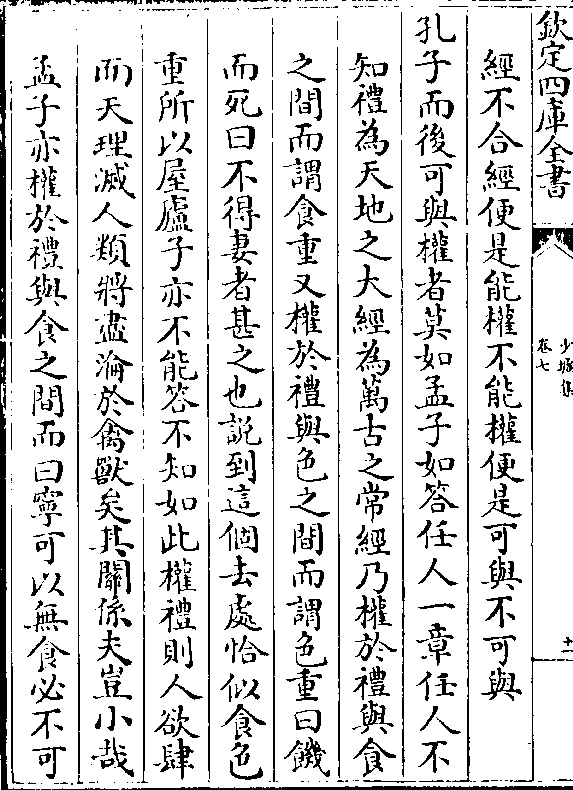 欽定四庫全書
少墟集
卷七
十一
經不合經便是能權不能權便是可與不可與
孔子而後可與權者莫如孟子如答任人一章任人不
知禮為天地之大經為萬古之常經乃權於禮與食
之間而謂食重又權於禮與色之間而謂色重曰饑
而死曰不得妻者甚之也説到這個去處恰似食色
重所以屋廬子亦不能答不知如此權禮則人欲肆
而天理滅人類將盡淪於禽獸矣其關係夫豈小哉
孟子亦權於禮與食之間而曰寧可以無食必不可